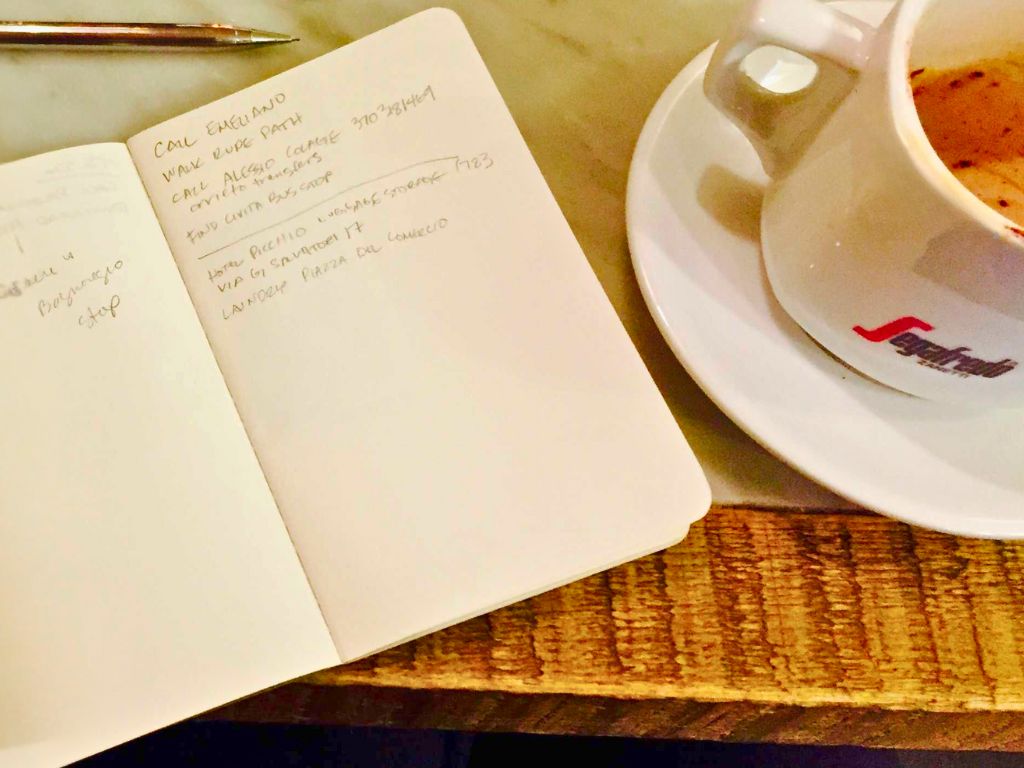 Bagnoregio
stop
CALL EMELIANO
WALK RUPE PATH
CALL ALESSIO 3703281469
orvieto transfers
FIND CIVITA BUS STOP
HOTEL PICCHIO LUGGAGE STORAGE 1783
VIA G. SALVATORI 17
LAUNDRY PIAZZA DEL COMERCIO
Segafredo
ZANETTI